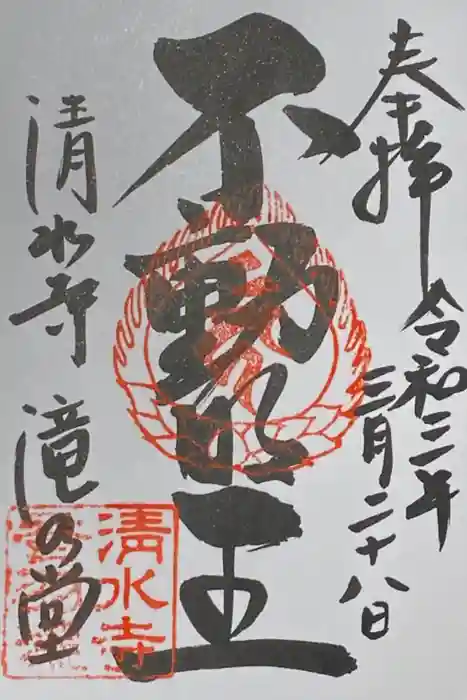 奉拝
令和三年
三月二十八日
不動明王
清水寺 滝の堂
清水寺